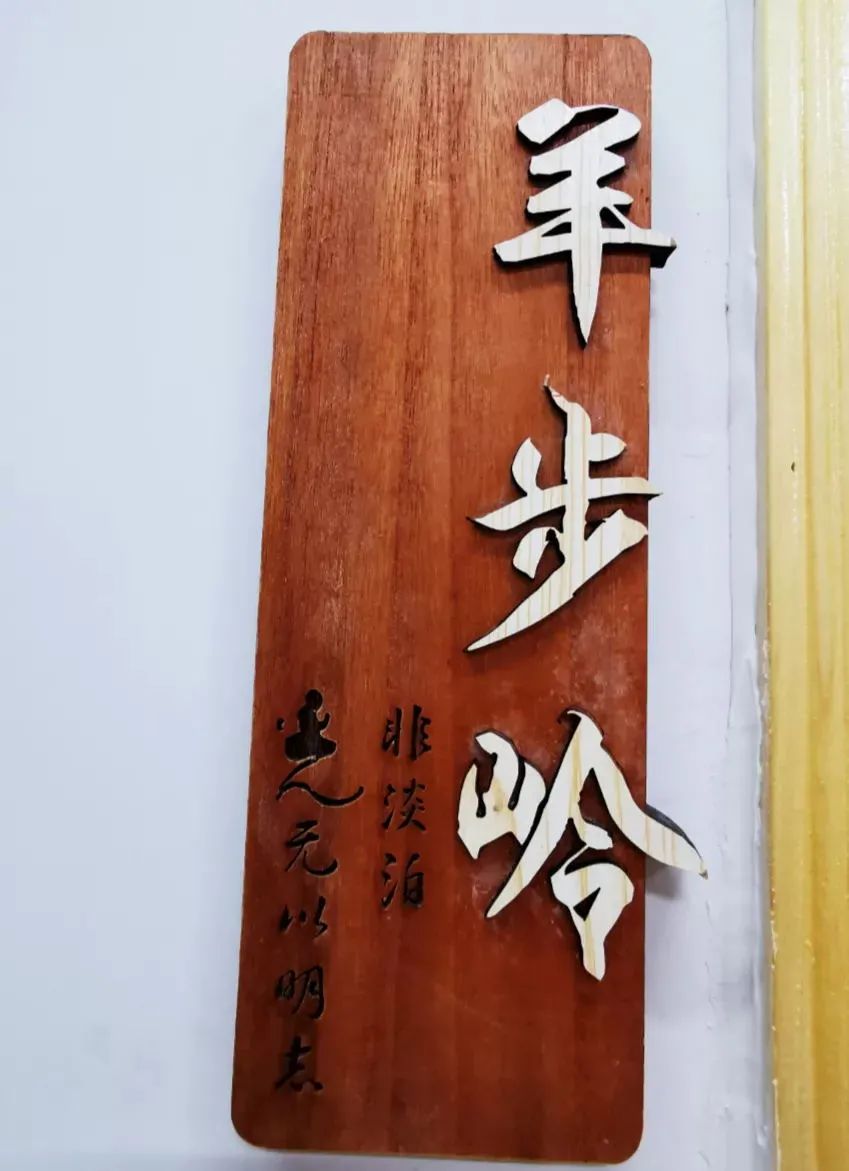 羊步岭
非淡泊
无以明志